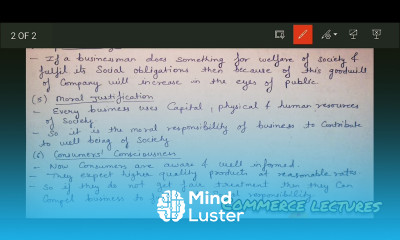 2 OF 2
- If a businessman does something for welfare of society &
fulfil its Social obligations then because of this goodwill
of Company will increase in the eyes of public.
(5) Moral Justification
- Every business uses Capital, physical & human resources
of Society.
- So it is the moral responsibility of business to Contribute
to well being of Society
(6) Consumers' Consciousness
- Now Consumers are aware & well informed.
- They expect higher quality products at reasonable rates.
- So if they do not get fair treatment then they Can
Compel business to responsibility.
COMMERCE LECTURES
Mind
Luster